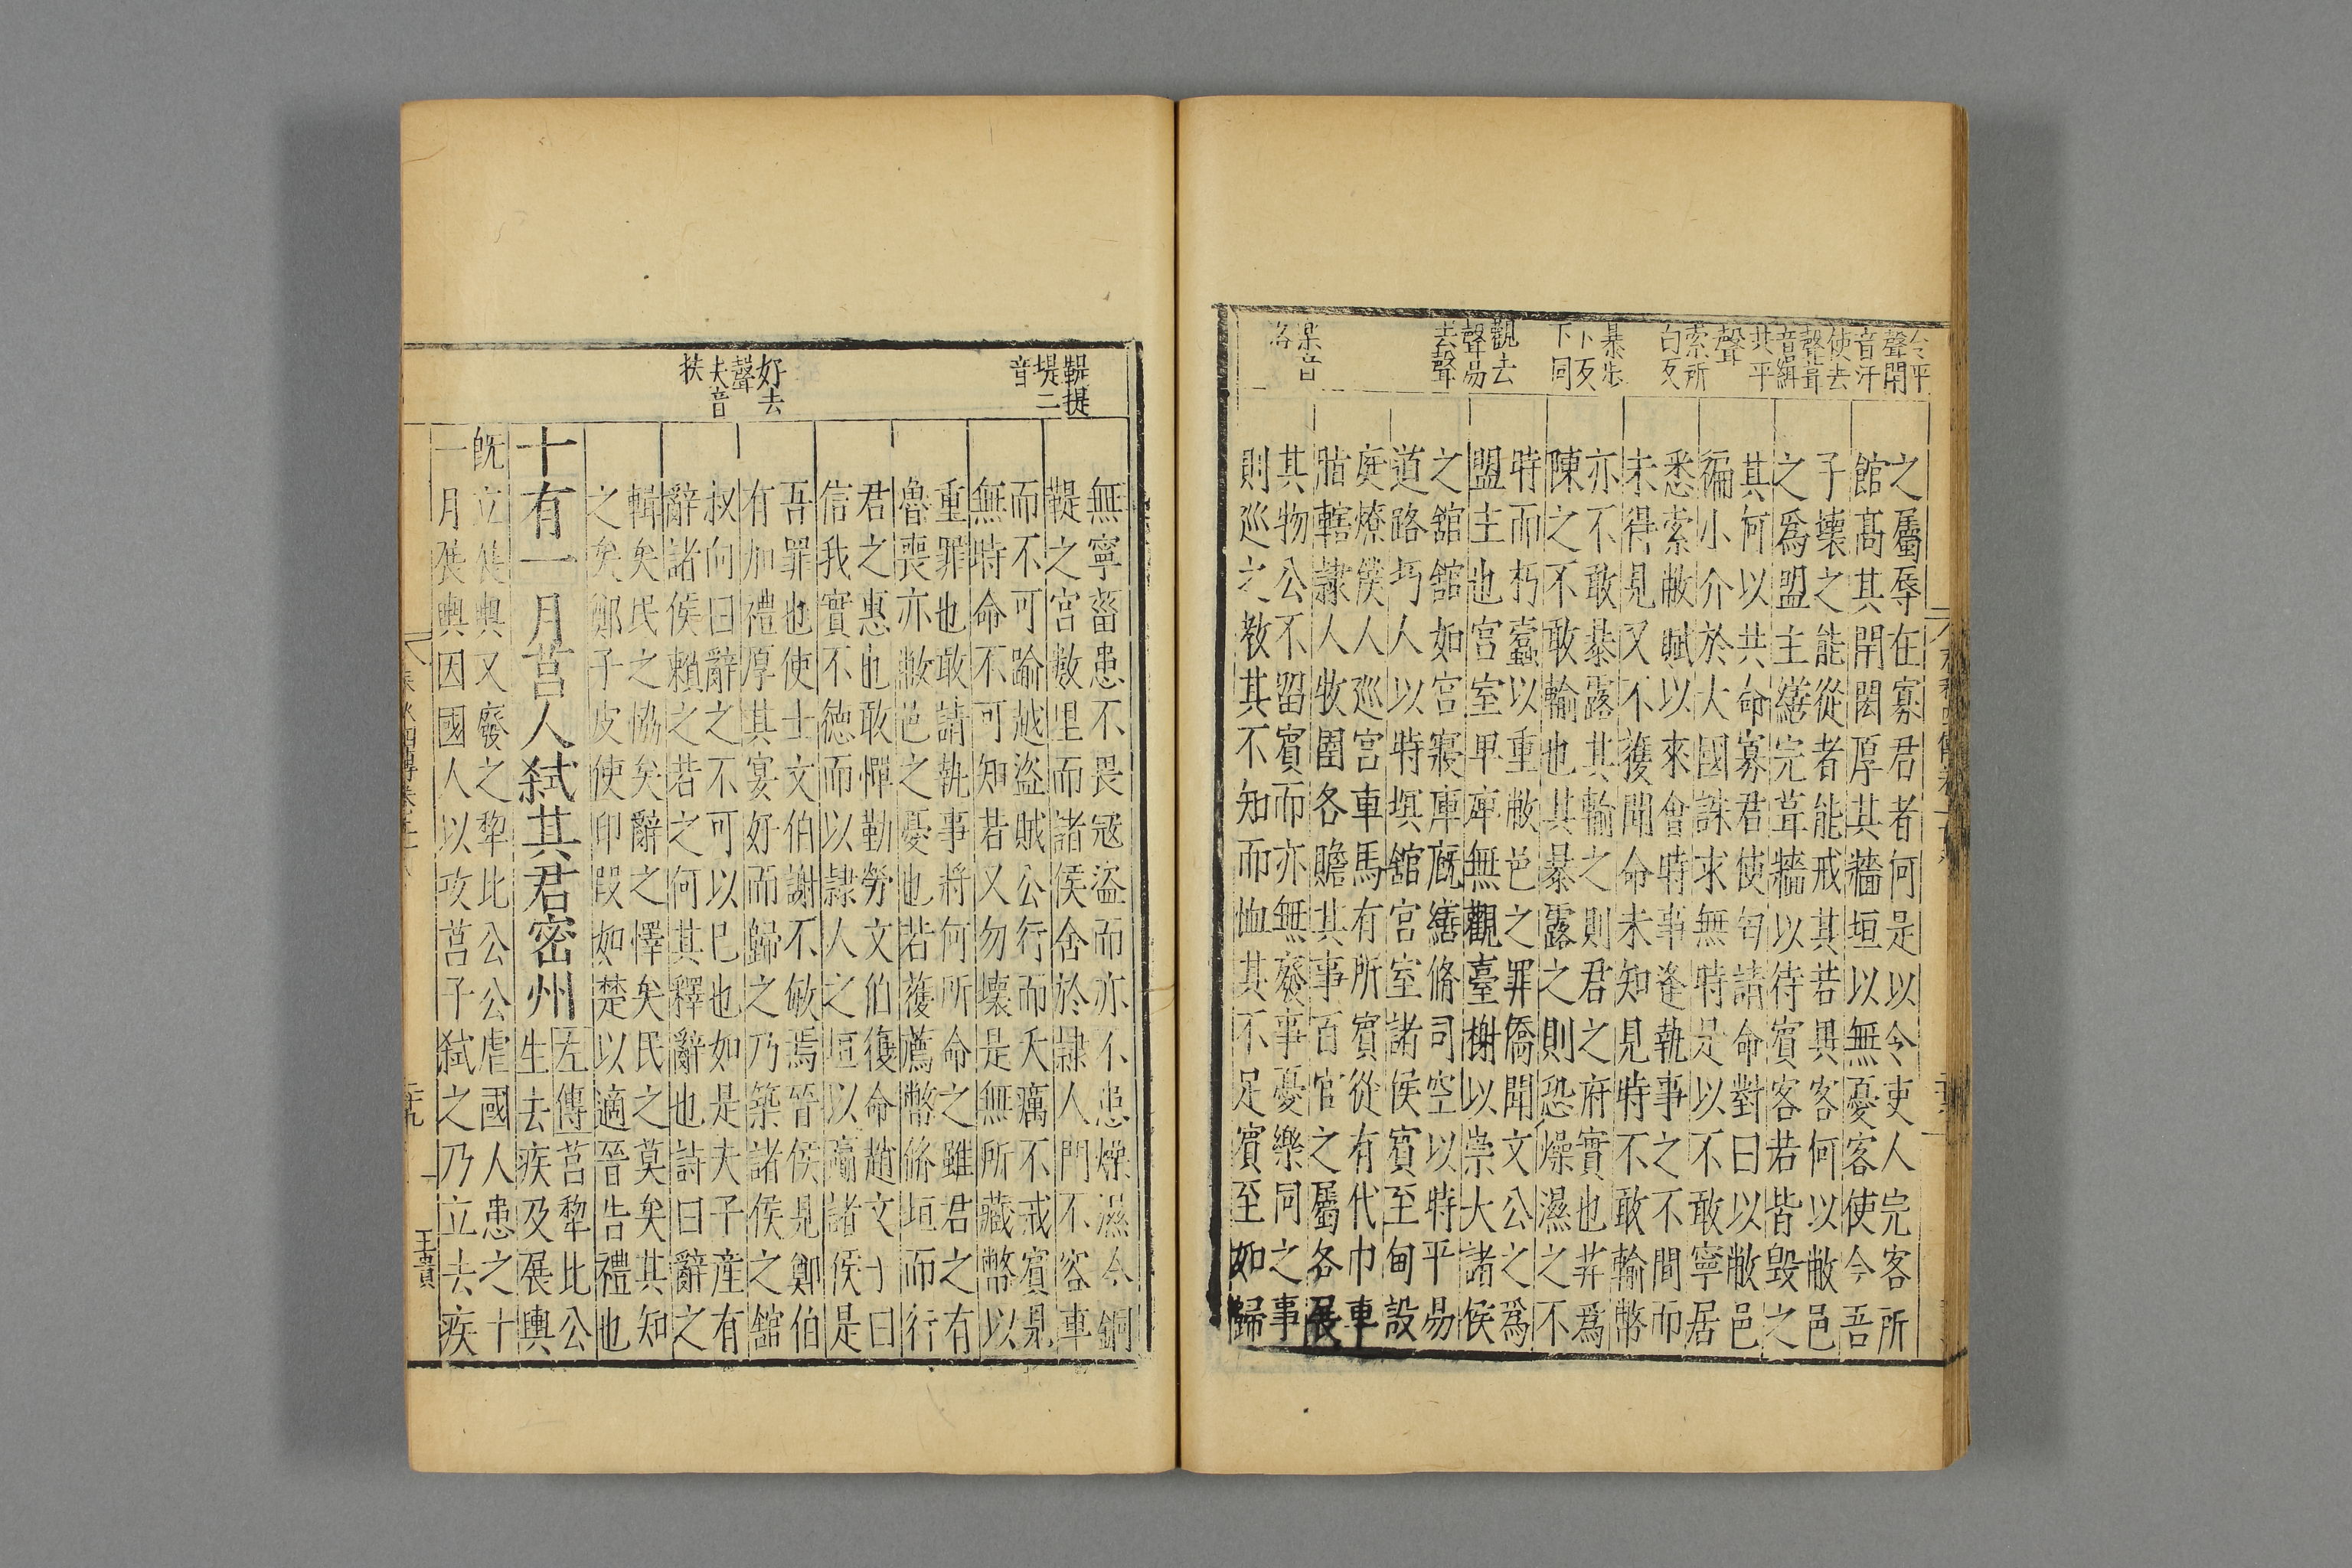 令平
聲閈
音汗
使去
聲葺
音緝
共平
聲
索所
白反
暴步
卜反
下同
觀去
聲易
去聲
樂音
洛
之屬辱在寡君者何是以令吏人完客所
館髙其閈閎厚其牆垣以無憂客使今吾
子壊之能從者能戒其若異客何以敝邑
之爲盟主繕完葺牆以待賓客若皆毀之
其何以共命寡君使匄請命對曰以敝邑
褊小介於大國誅求無時是以不敢寧居
悉索敝賦以來會時事逢執事之不間而
未得見又不獲聞命未知見時不敢輸幣
亦不敢暴露其輸之則君之府實也
陳之不敢輸也其暴露之則恐燥濕之不
時而朽蠹以重敝邑之罪僑聞文公之爲
盟主也宮室卑庳無觀臺榭以崇大諸侯
之舘舘如宮寢庫廐繕脩司空以時平易
道路圬人以時塓舘宮室諸侯賓至甸設
庭燎僕人巡宮車馬有所賓從有代巾車
脂轄隷人牧圉各瞻其事百官之屬各展
其物公不留賓而亦無廢事憂樂同之事
則巡之教其不知而恤其不足賓至如歸
鞮提
堤二
音
好去
聲
夫音
扶
無寧菑患不畏寇盗而亦不患燥濕今銅
鞮之宮數里而諸侯舍於隷人門不容車
而不可踰越盗賊公行而天癘不戒賓見
無時命不可知若又勿壊是無所藏幣以
重罪也敢請執事將何所命之雖君之有
魯喪亦敝邑之憂也若獲薦幣脩垣而行
君之惠也敢憚勤勞文伯復命趙文子曰
信我實不德而以隷人之垣以贏諸侯是
吾罪也使士文伯謝不敏焉晉侯見鄭伯
有加禮厚其宴好而歸之乃築諸侯之舘
叔向曰辭之不可以已也如是夫子產有
辭諸侯賴之若之何其釋辭也詩曰辭之
輯矣民之協矣辭之懌矣民之莫矣其知
之矣鄭子皮使印叚如楚以適晉告禮也
十有一月莒人弑其君密州
左傳莒犂比公
生去疾及展輿
既立展輿又廢之犂比公虐國人患之十
一月展輿因國人以攻莒子弑之乃立去疾
王貫